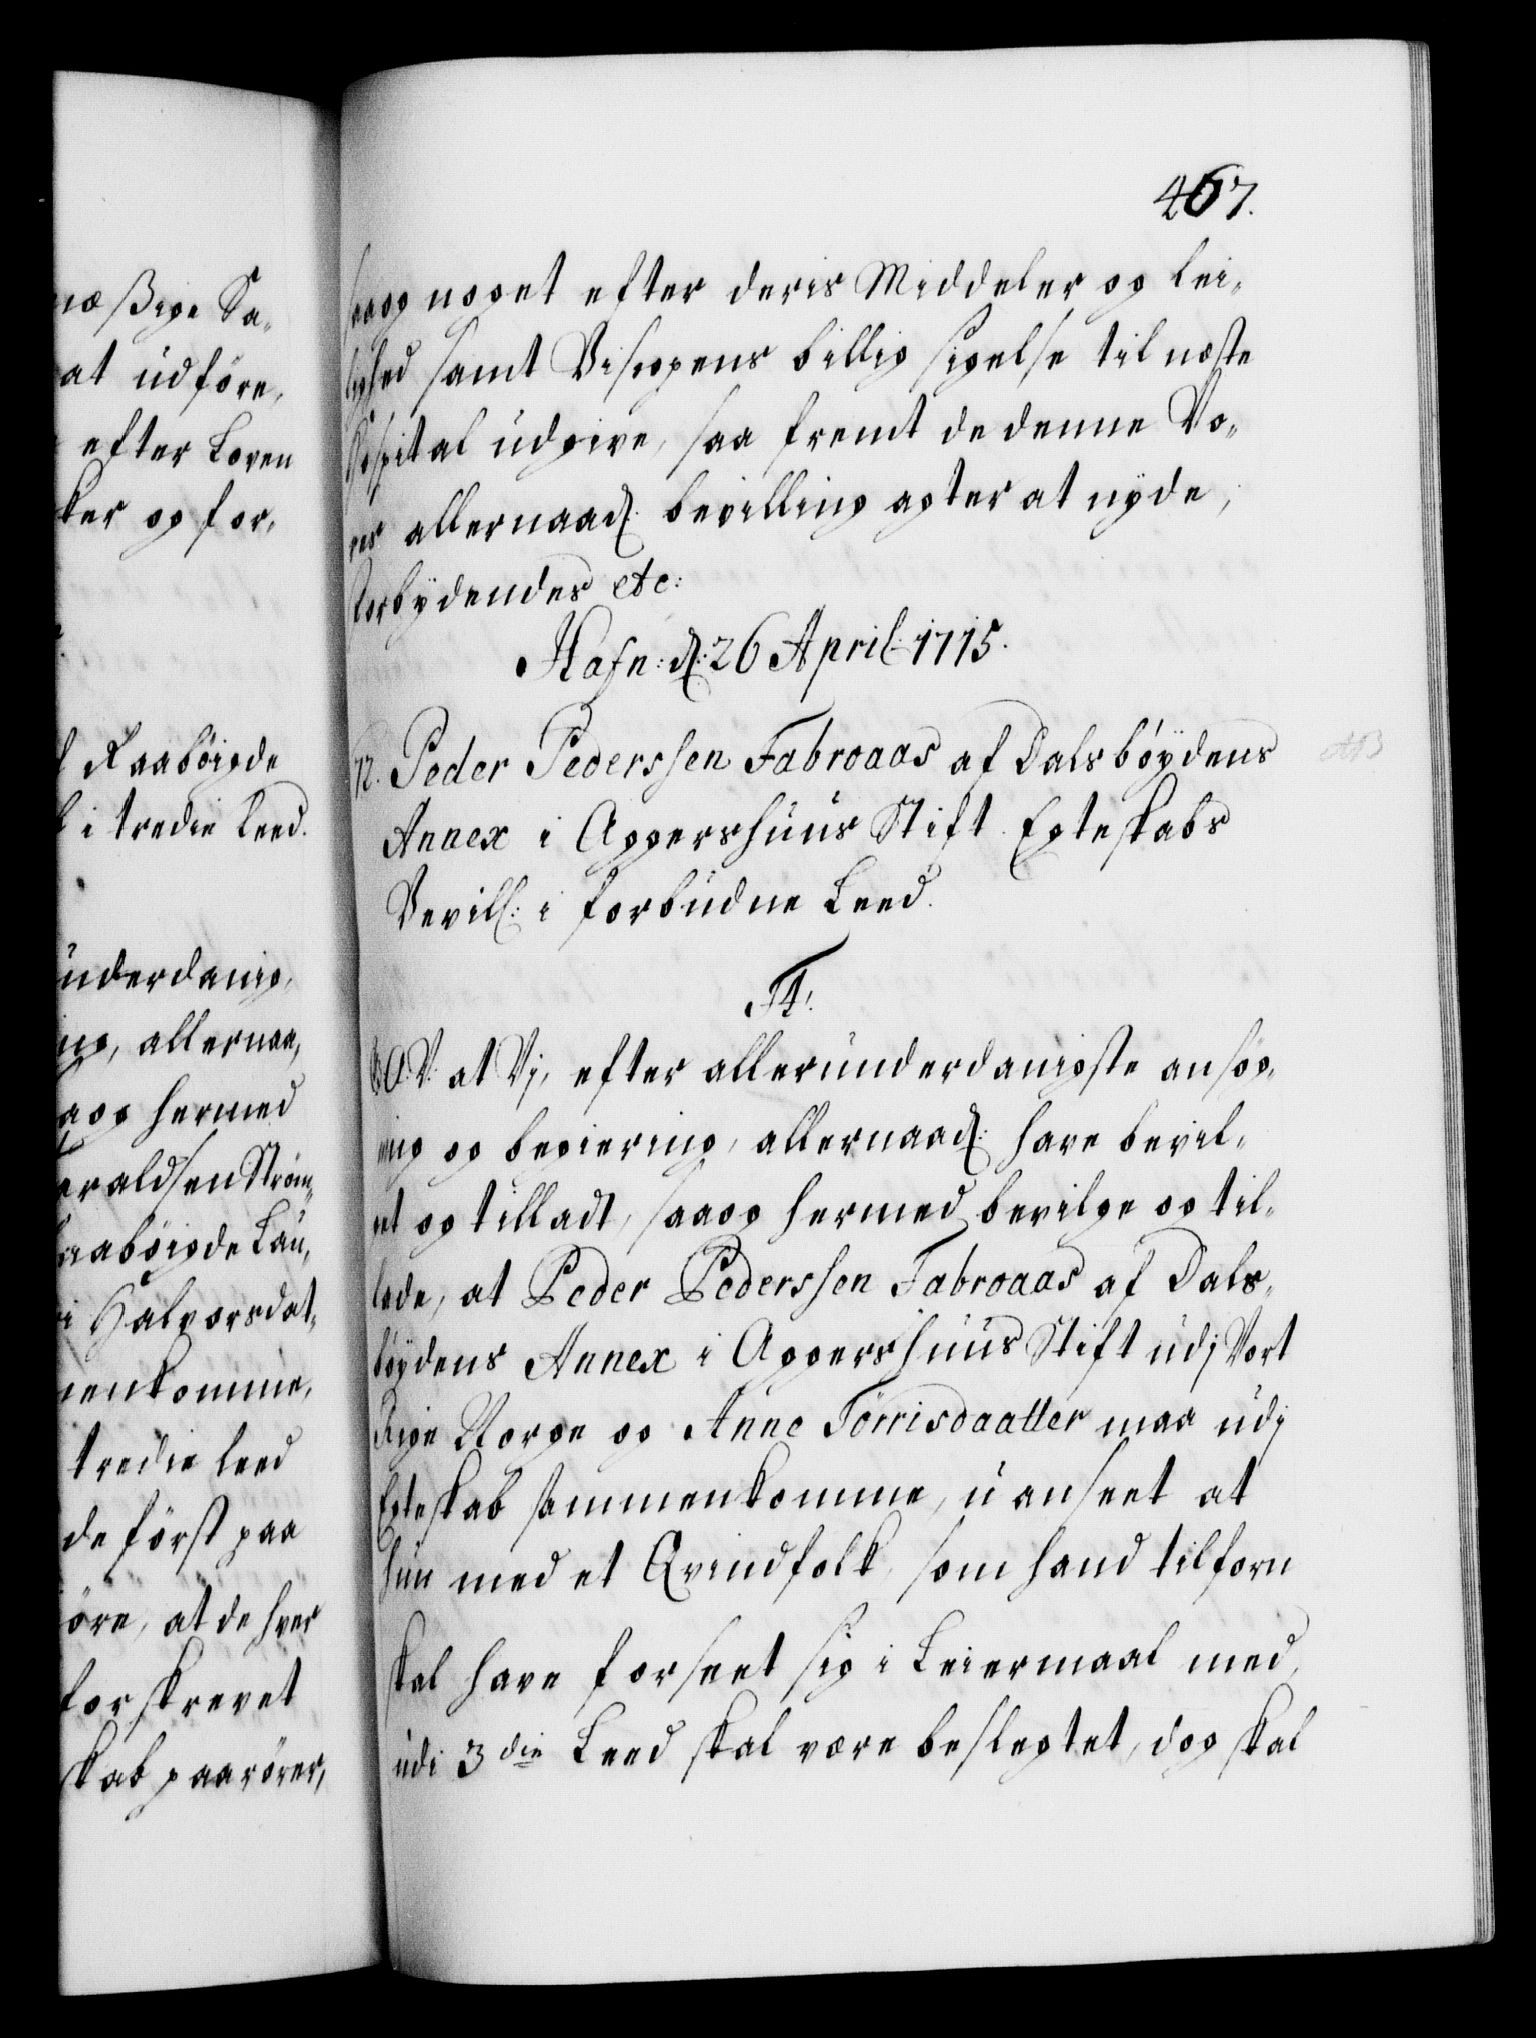 467.
saaog noget efter deris Middeler og lei-
lighed samt Biscopens billig sigelse til næste
Hospital udgive, saa fremt de denne Vo-
res allernaad. bevilling agter at nyde,
Forbydendes etc:
Hafn: d: 26 April: 1715.
Peder Pederssen Fabroaas af Dalsbøydens
Annex i Aggershuus Stift. Egteskabs
Bevill: i forbudne Leed.
F4.
G. A. V. at Vj, efter allerunderdanigste ansøg-
ning og begiering, allernaad: have bevil-
get og tilladt, saaog hermed bevilge og til-
lade, at Peder Pederssen Fabroaas af Dals-
bøydens Annex i Aggershuus Stift udj Vort
Rige Norge og Anne Törrisdaatter maa udj
Egteskab sammenkomme, uanseet at
hun med et Qvindfolk, som hand tilforn
skal have forseet sig i Leiermaal med,
udi 3die Leed skal være beslegtet, dog skal
næßige Sa-
at udföre,
efter Loven
ker og for-
Raabøigde
i tredie Leed.
underdanig-
ing, allernaa-
aog hermed
eraldsen Ström-
aabøigde Lau-
i Halvorsdat-
menkomme,
tredie leed
de först paa
öre, at de hver
forskrevet
skab paarörer,